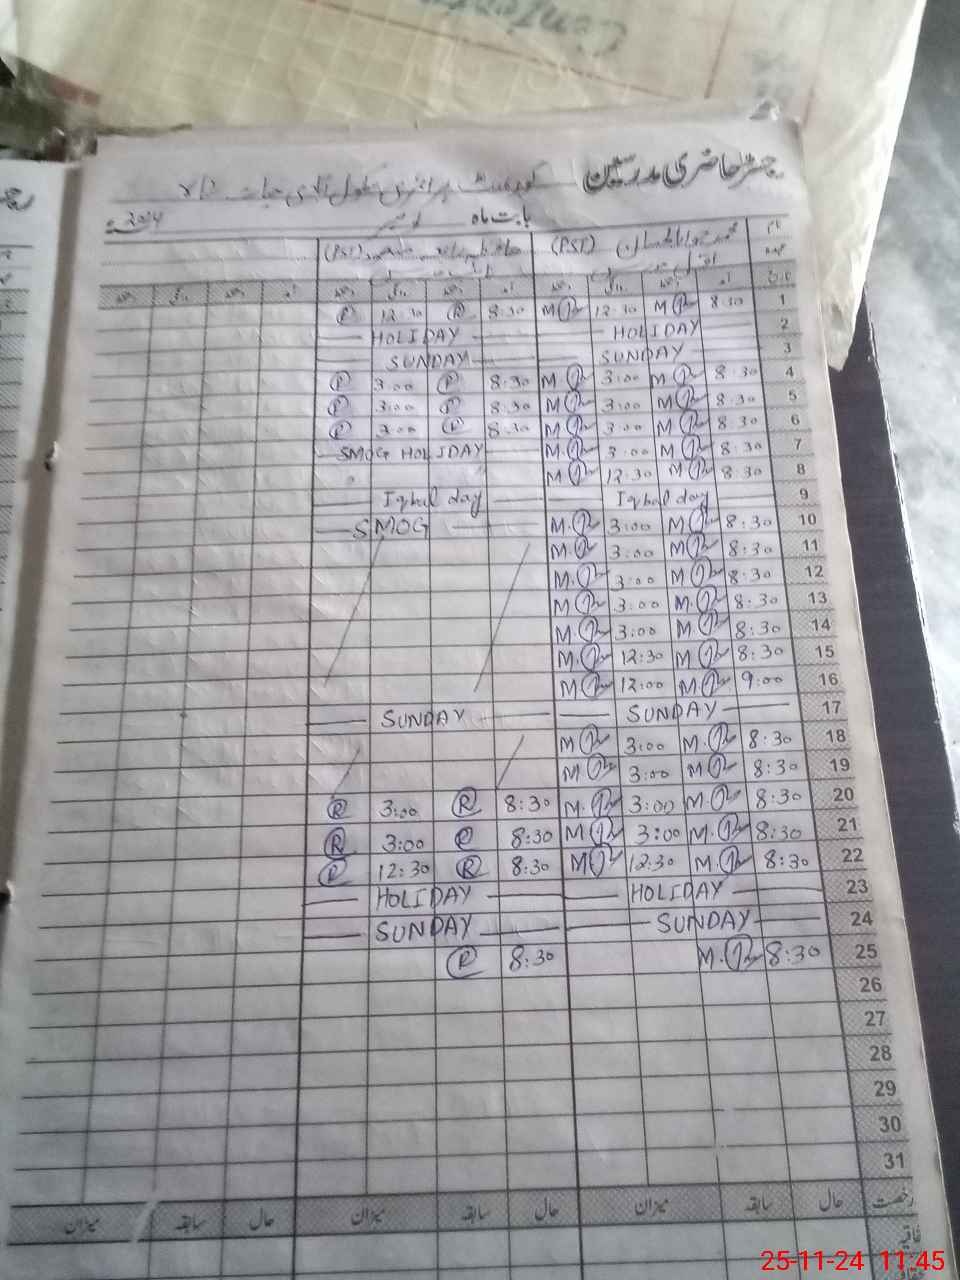 رجسٹر حاضری مدرسین گورنمنٹ پرائمری سکول
بابت ماہ نومبر
نام محمد (PST) (PST)
عہدہ
تاریخ آمد دستخط روانگی دستخط آمد دستخط روانگی دستخط آمد دستخط روانگی دستخط
1 8:30 M 12:30 M 8:30 R 12:30 R
2 HOLIDAY HOLIDAY
3 SUNDAY SUNDAY
4 8:30 M 3:00 M 8:30 R 3:00 R
5 8:30 M 3:00 M 8:30 R 3:00 R
6 8:30 M 3:00 M 8:30 R 3:00 R
7 8:30 M 3:00 M SMOG HOLIDAY
8 8:30 M 12:30 M
9 Iqbal day Iqbal day
10 8:30 M 3:00 M SMOG
11 8:30 M 3:00 M
12 8:30 M 3:00 M
13 8:30 M 3:00 M
14 8:30 M 3:00 M
15 8:30 M 12:30 M
16 9:00 M 12:00 M
17 SUNDAY SUNDAY
18 8:30 M 3:00 M
19 8:30 M 3:00 M
20 8:30 M 3:00 M 8:30 R 3:00 R
21 8:30 M 3:00 M 8:30 R 3:00 R
22 8:30 M 12:30 M 8:30 R 12:30 R
23 HOLIDAY HOLIDAY
24 SUNDAY SUNDAY
25 8:30 M 8:30 R
26
27
28
29
30
31
رخصت حال سابقہ میزان حال سابقہ میزان حال سابقہ میزان
25-11-24 11:45